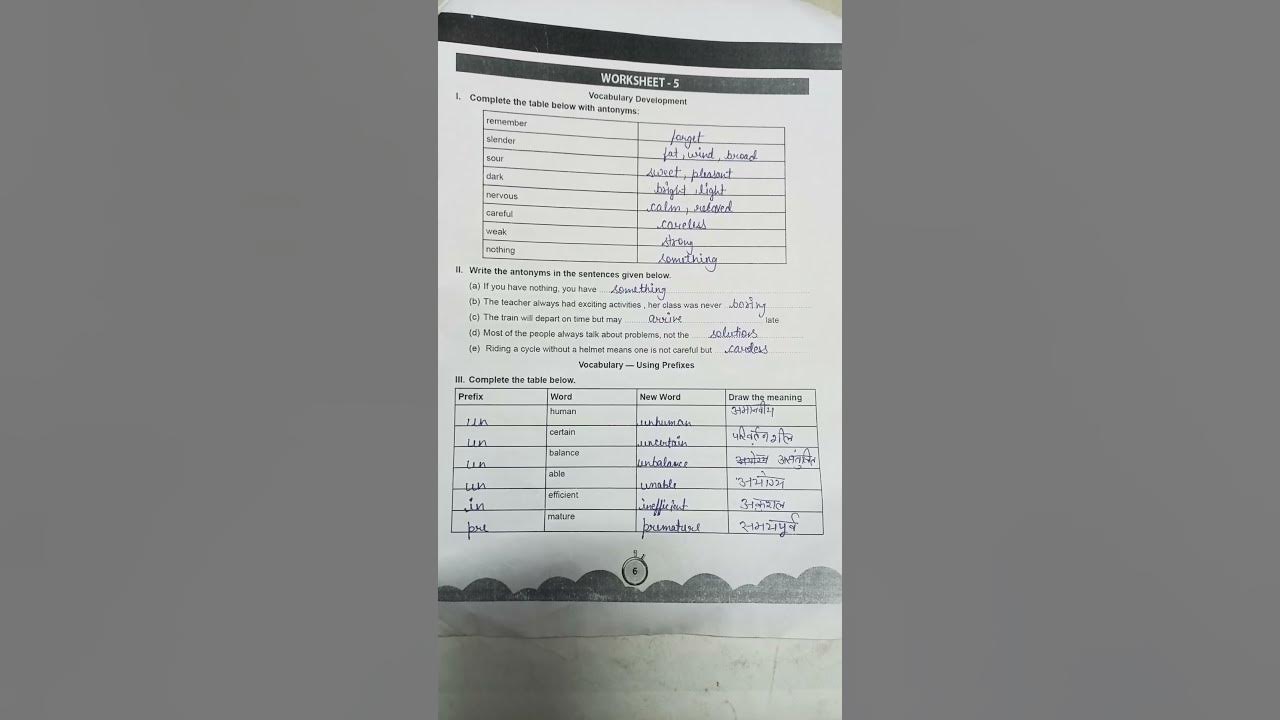 WORKSHEET - 5
Vocabulary Development
I. Complete the table below with antonyms:
remember forget
slender fat, wind, broad
sour sweet, pleasant
dark bright, light
nervous calm, relaxed
careful careless
weak strong
nothing something
II. Write the antonyms in the sentences given below.
(a) If you have nothing, you have something
(b) The teacher always had exciting activities , her class was never boring
(c) The train will depart on time but may arrive late
(d) Most of the people always talk about problems, not the solutions
(e) Riding a cycle without a helmet means one is not careful but careless
Vocabulary — Using Prefixes
III. Complete the table below.
Prefix Word New Word Draw the meaning
un human unhuman अमानवीय
un certain uncertain परिवर्तनशील
un balance unbalance असंतुलित
un able unable अयोग्य
in efficient inefficient अकुशल
pre mature premature समयपूर्व
6